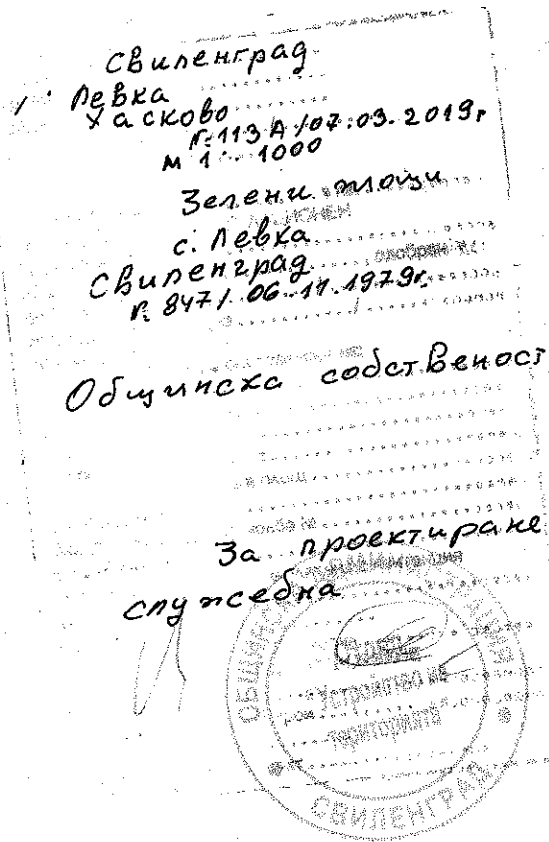 Свиленград
Левка
Хасково
№113А/07.03.2019г
М 1: 1000
Зелени площи
с. Левка
Свиленград
№ 847/ 06.11.1979г.
Общинска собственост
За проектиране
служебна
устройство на
територията
СВИЛЕНГРАД